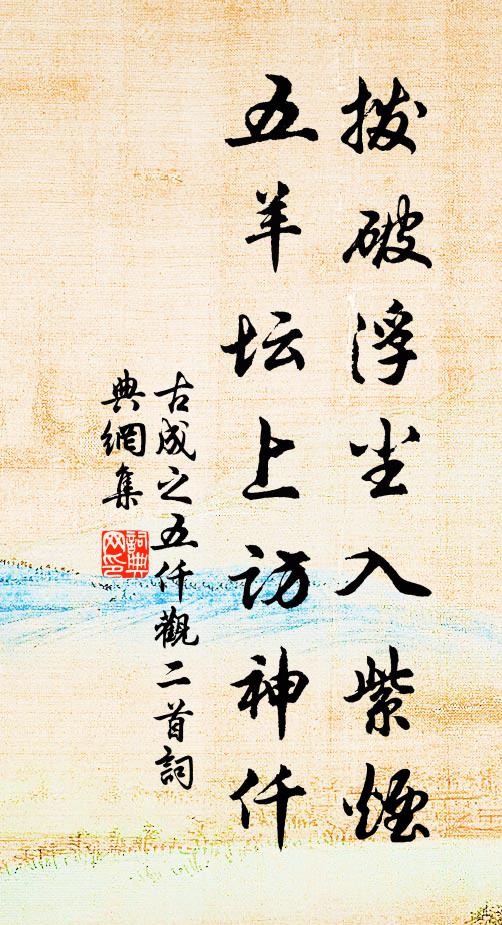 拨破浮尘入紫煙
五羊坛上访神仟
古成之五仟觀二首詞
典網集
詞典
网印